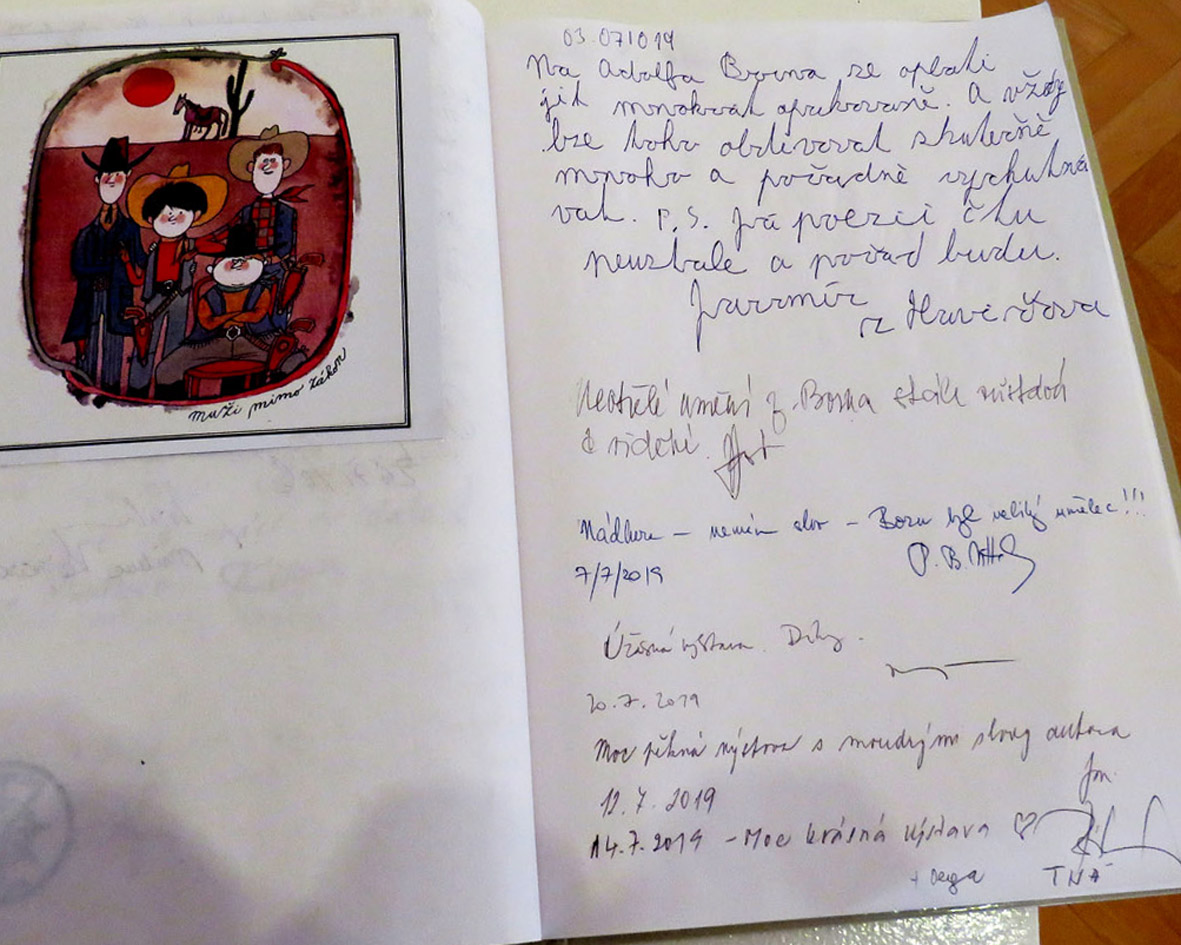 muži mimo zákon
03.071019
Na Adolfa Borna se oplatí
jít mnohokrát opakovaně. A vždy
lze toho obdivovat skutečně
mnoho a pořádně vychutná
vat. P.S. Já poezii čtu
neustále a pořád budu.
Jaromír
z Havířova
umění z Borna stále
Nádhera – nemám slov – Born byl veliký umělec!!!
P. B.
7/7/2019
Úžasná výstava. Díky.
20.7.2019
Moc pěkná výstava s moudrými slovy autora
12.7.2019
14.7.2019 - Moc krásná výstava ♡